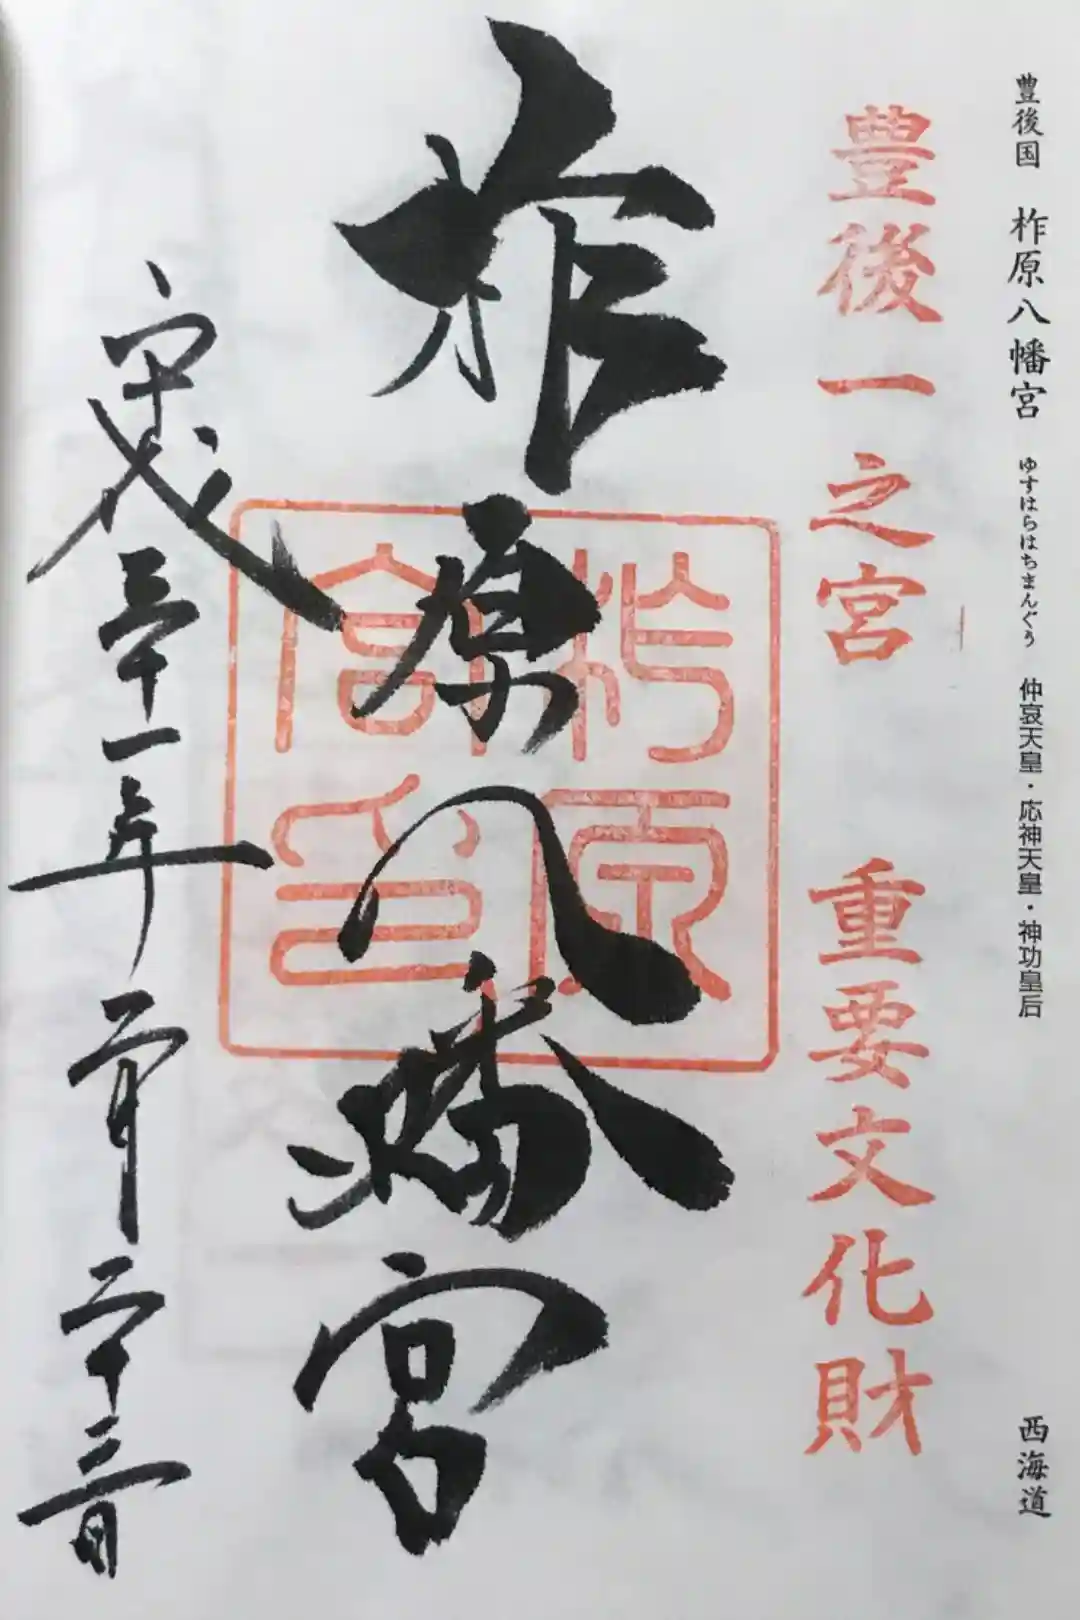 豊後国 柞原八幡宮 ゆすはらはちまんぐう 仲哀天皇・応神天皇・神功皇后 西海道
豊後一之宮 重要文化財
柞原八幡宮
柞原
宮印
平成三十一年二月二十三日